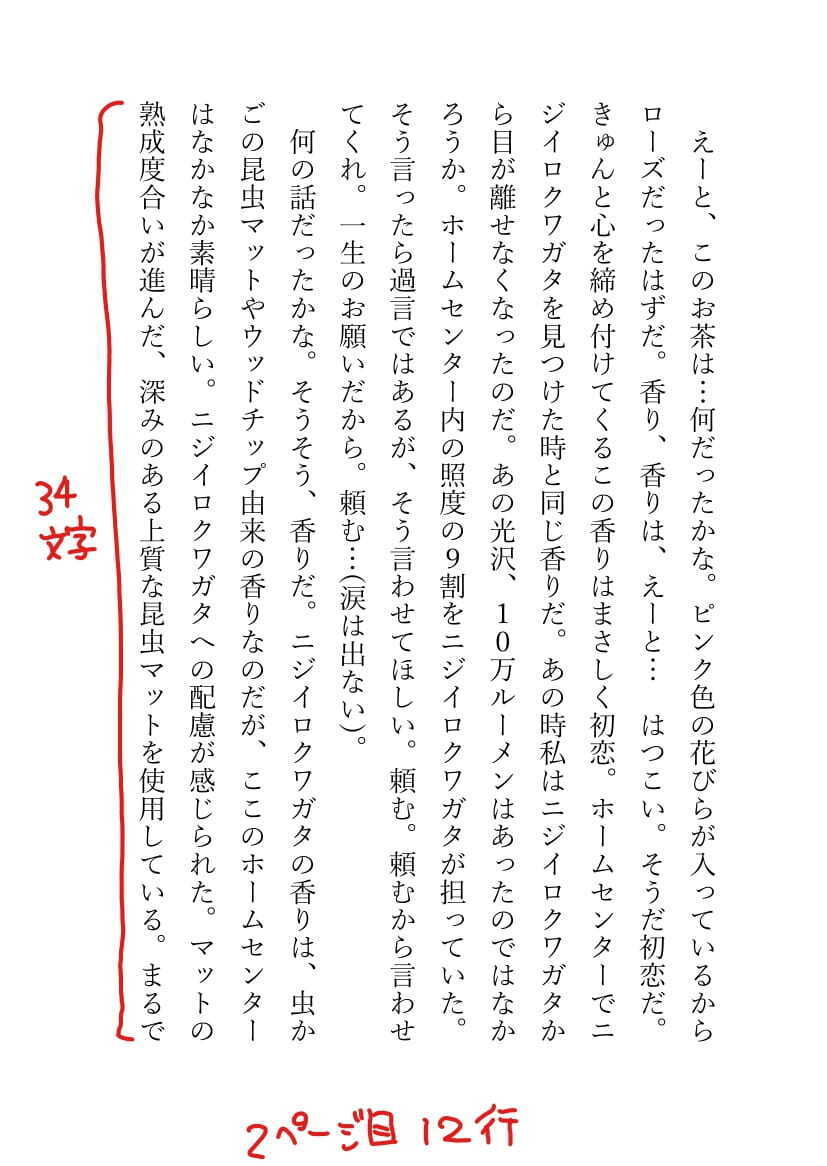 えーと、このお茶は…何だったかな。ピンク色の花びらが入っているから
ローズだったはずだ。香り、香りは、えーと…　はつこい。そうだ初恋だ。
きゅんと心を締め付けてくるこの香りはまさしく初恋。ホームセンターでニ
ジイロクワガタを見つけた時と同じ香りだ。あの時私はニジイロクワガタか
ら目が離せなくなったのだ。あの光沢、10万ルーメンはあったのではなか
ろうか。ホームセンター内の照度の9割をニジイロクワガタが担っていた。
そう言ったら過言ではあるが、そう言わせてほしい。頼む。頼むから言わせ
てくれ。一生のお願いだから。頼む…(涙は出ない)。
　何の話だったかな。そうそう、香りだ。ニジイロクワガタの香りは、虫か
ごの昆虫マットやウッドチップ由来の香りなのだが、ここのホームセンター
はなかなか素晴らしい。ニジイロクワガタへの配慮が感じられた。マットの
熟成度合いが進んだ、深みのある上質な昆虫マットを使用している。まるで
34
文字
2ページ目 12行